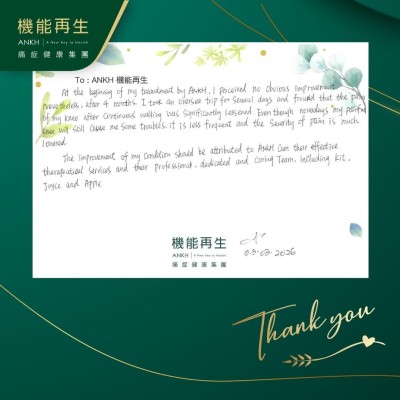 機能再生
ANKH | A New Key to Health
痛症健康集團
To : ANKH 機能再生
At the beginning of my treatment by ANKH, I perceived no obvious improvement
nevertheless, after 4 months. I took an oversea trip for several days and found that the pain
of my knee after continuous walking was significantly lessened. Even though nowadays my painful
knee will still cause me some troubles, it is less frequent and the severity of pain is much
lowered.
The improvement of my condition should be attributed to ANKH Can their effective
therapeutical services and their professional, dedicated and caring team, including Kit,
Joyce and Apple
機能再生
ANKH | A New Key to Health
痛症健康集團
03-03-2026
Thank you